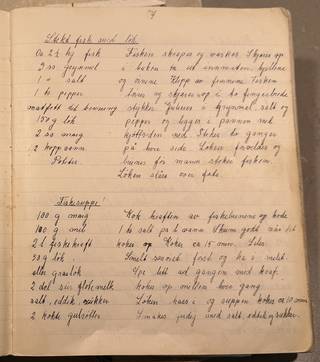 Stekt fisk med løk
Ca 2½ kg fisk Fisken skrapes og vaskes. Skjæres opp
3 ss grynmel i buken ta ut innmaten, gjellene
1 " salt og øinene Klipp av finnene Fisken
1 ts pepper skjæres opp i to fingerbrede
matfett til bruning stykker grynmel, salt og
150 g løk pepper og legges i pannen med
2 ss smør ned. Stekes to ganger
1 2 kopp vann på hver side Løken
Poteter. brunes før mann steker fisken.
Løken slåes over fate.
Fiskesuppe!
100 g smør Kok kraften av fiskebenene og hode
100 g mel 1 ts salt på L vann Skum godt når det
2 l fiskekraft koker op Koker ca 15 min. Siles.
50 g løk Smelt smøret fresk og ha i melet.
eller grasløk Spe litt ad gangen med kraf.
2 del sur fløtemelk koker op mellem hver gang.
salt, eddik, sukker Løken haes i og suppen koker ca 10 min
2 kokte gulrøtter Smakes med salt, eddik og sukker.